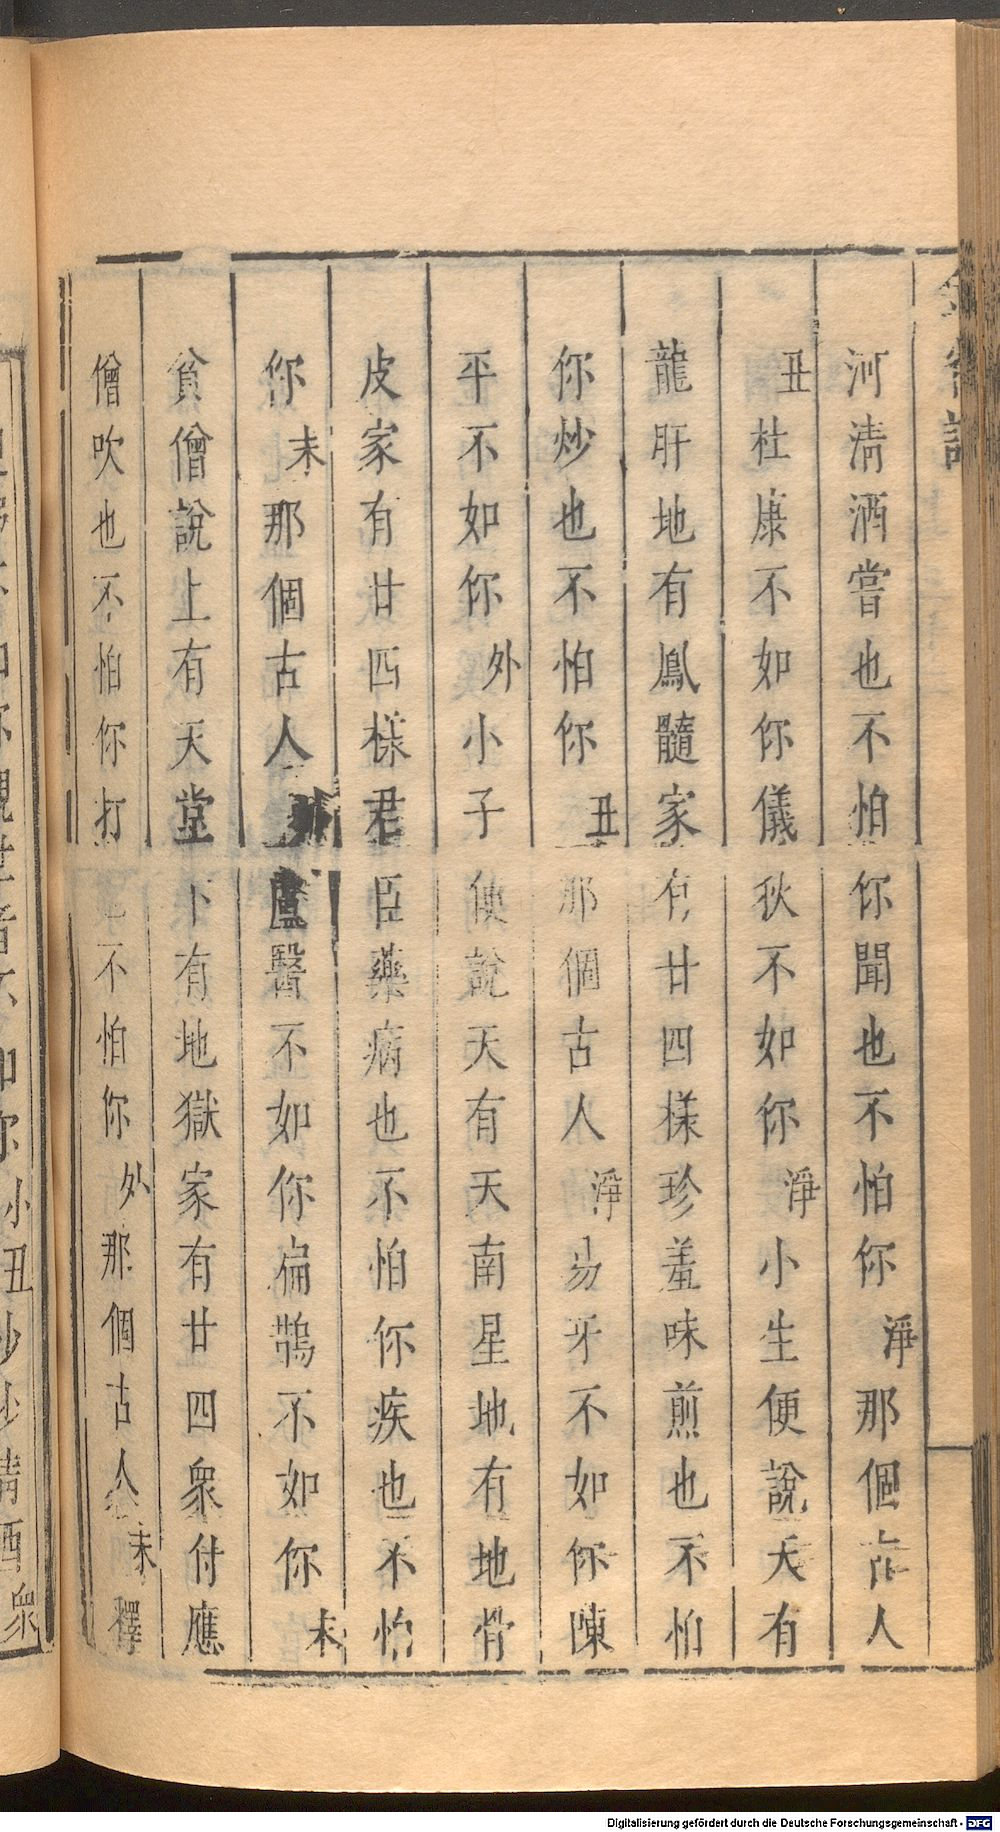 河清酒嘗也不怕你聞也不怕你淨那個古人
丑杜康不如你儀狄不如你淨小生便說天有
龍肝地有鳳髓家有廿四樣珍羞味煎也不怕
你炒也不怕你丑那個古人淨易牙不如你陳
平不如你外小子便說天有天南星地有地骨
皮家有廿四樣君臣藥病也不怕你疾也不怕
你末那個古人盧醫不如你扁鵲不如你末
貧僧說上有天堂下有地獄家有廿四眾付應
僧吹也不怕你打也不怕你外那個古人末釋
Digitalisierung gefördert durch die Deutsche Forschungsgemeinschaft - DFG